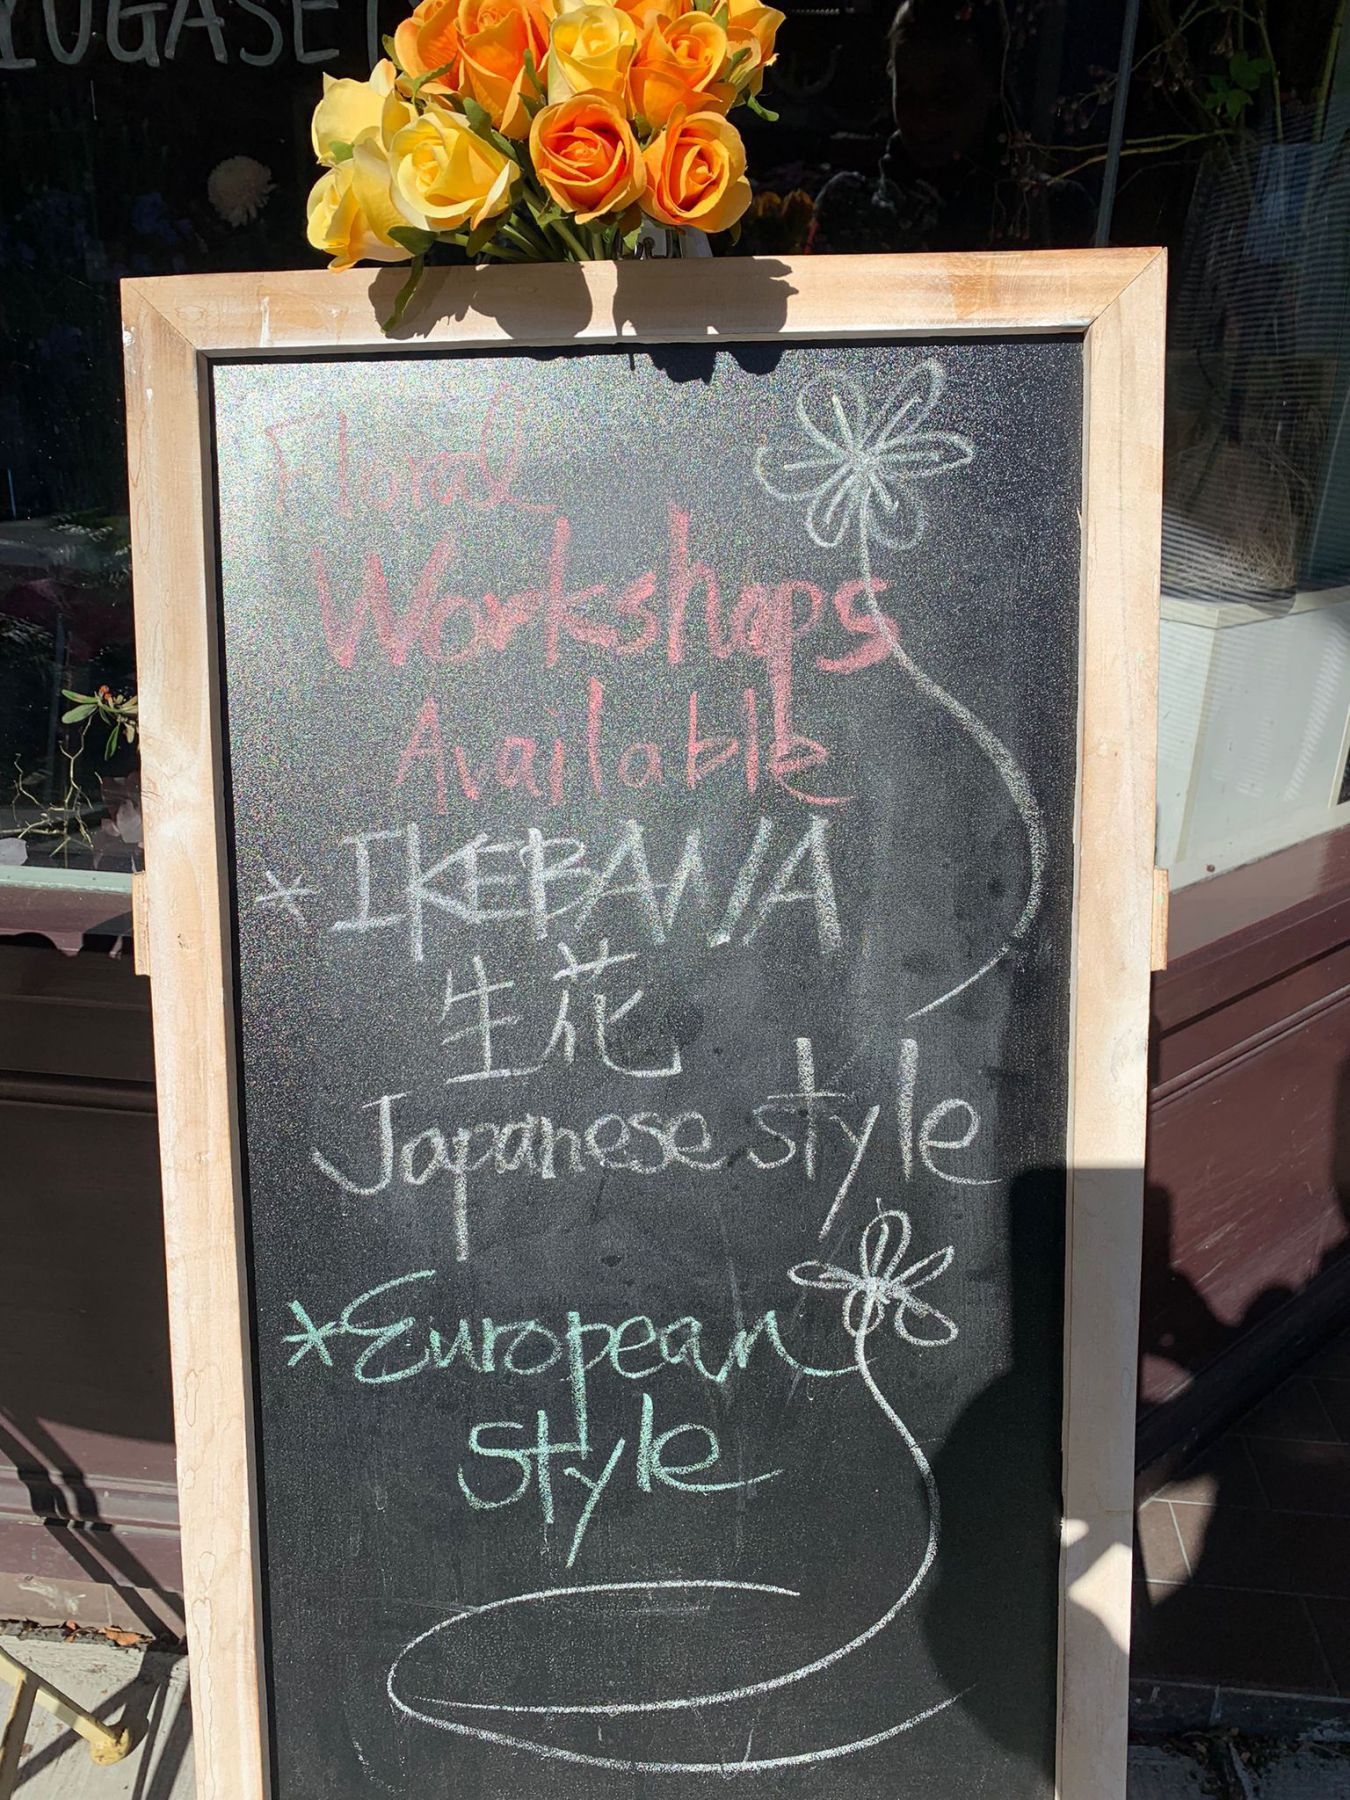 Floral
Workshops
Available
*IKEBANA
生花
Japanese style
*European
style